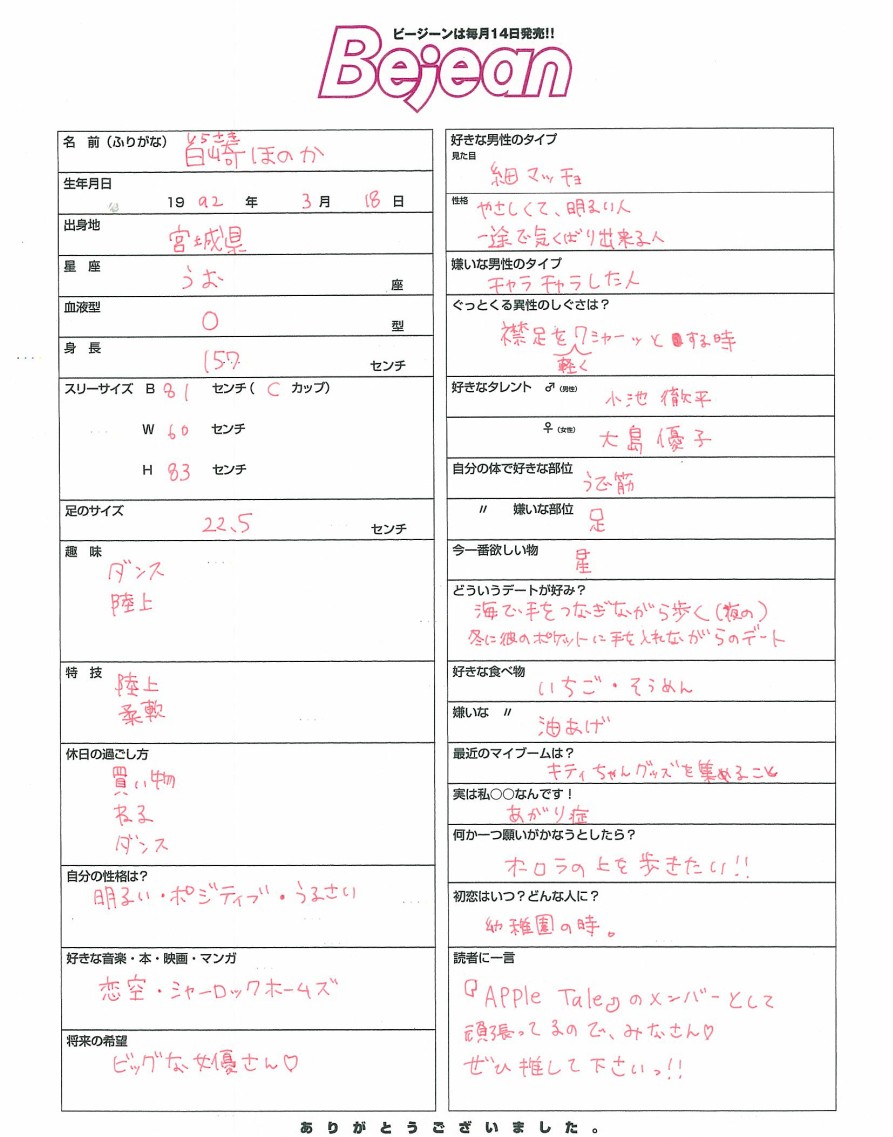 ビージーンは毎月14日発売!!
Bejean
名 前（ふりがな） しらさき
白崎ほのか
生年月日
19 92 年 3 月 18 日
出身地
宮城県
星 座
うお 座
血液型
O 型
身 長
157 センチ
スリーサイズ B 81 センチ( C カップ)
W 60 センチ
H 83 センチ
足のサイズ
22.5 センチ
趣 味
ダンス
陸上
特 技
陸上
柔軟
休日の過ごし方
買い物
ねる
ダンス
自分の性格は?
明るい・ポジティブ・うるさい
好きな音楽・本・映画・マンガ
恋空・シャーロックホームズ
将来の希望
ビッグな女優さん♡
好きな男性のタイプ
見た目
細マッチョ
性格 やさしくて、明るい人
一途で気くばり出来る人
嫌いな男性のタイプ
チャラチャラした人
ぐっとくる異性のしぐさは?
襟足をワシャーッとする時
軽く
好きなタレント ♂(男性) 小池徹平
♀(女性) 大島優子
自分の体で好きな部位
うで筋
〃 嫌いな部位
足
今一番欲しい物
星
どういうデートが好み?
海で手をつなぎながら歩く(夜の)
冬に彼のポケットに手を入れながらのデート
好きな食べ物
いちご・そうめん
嫌いな 〃
油あげ
最近のマイブームは?
キティちゃんグッズを集めること
実は私〇〇なんです!
あがり症
何か一つ願いがかなうとしたら?
オーロラの上を歩きたい!!
初恋はいつ?どんな人に?
幼稚園の時。
読者に一言
『APPle Tale』のメンバーとして
頑張ってるので、みなさん♡
ぜひ推して下さいっ!!
ありがとうございました。